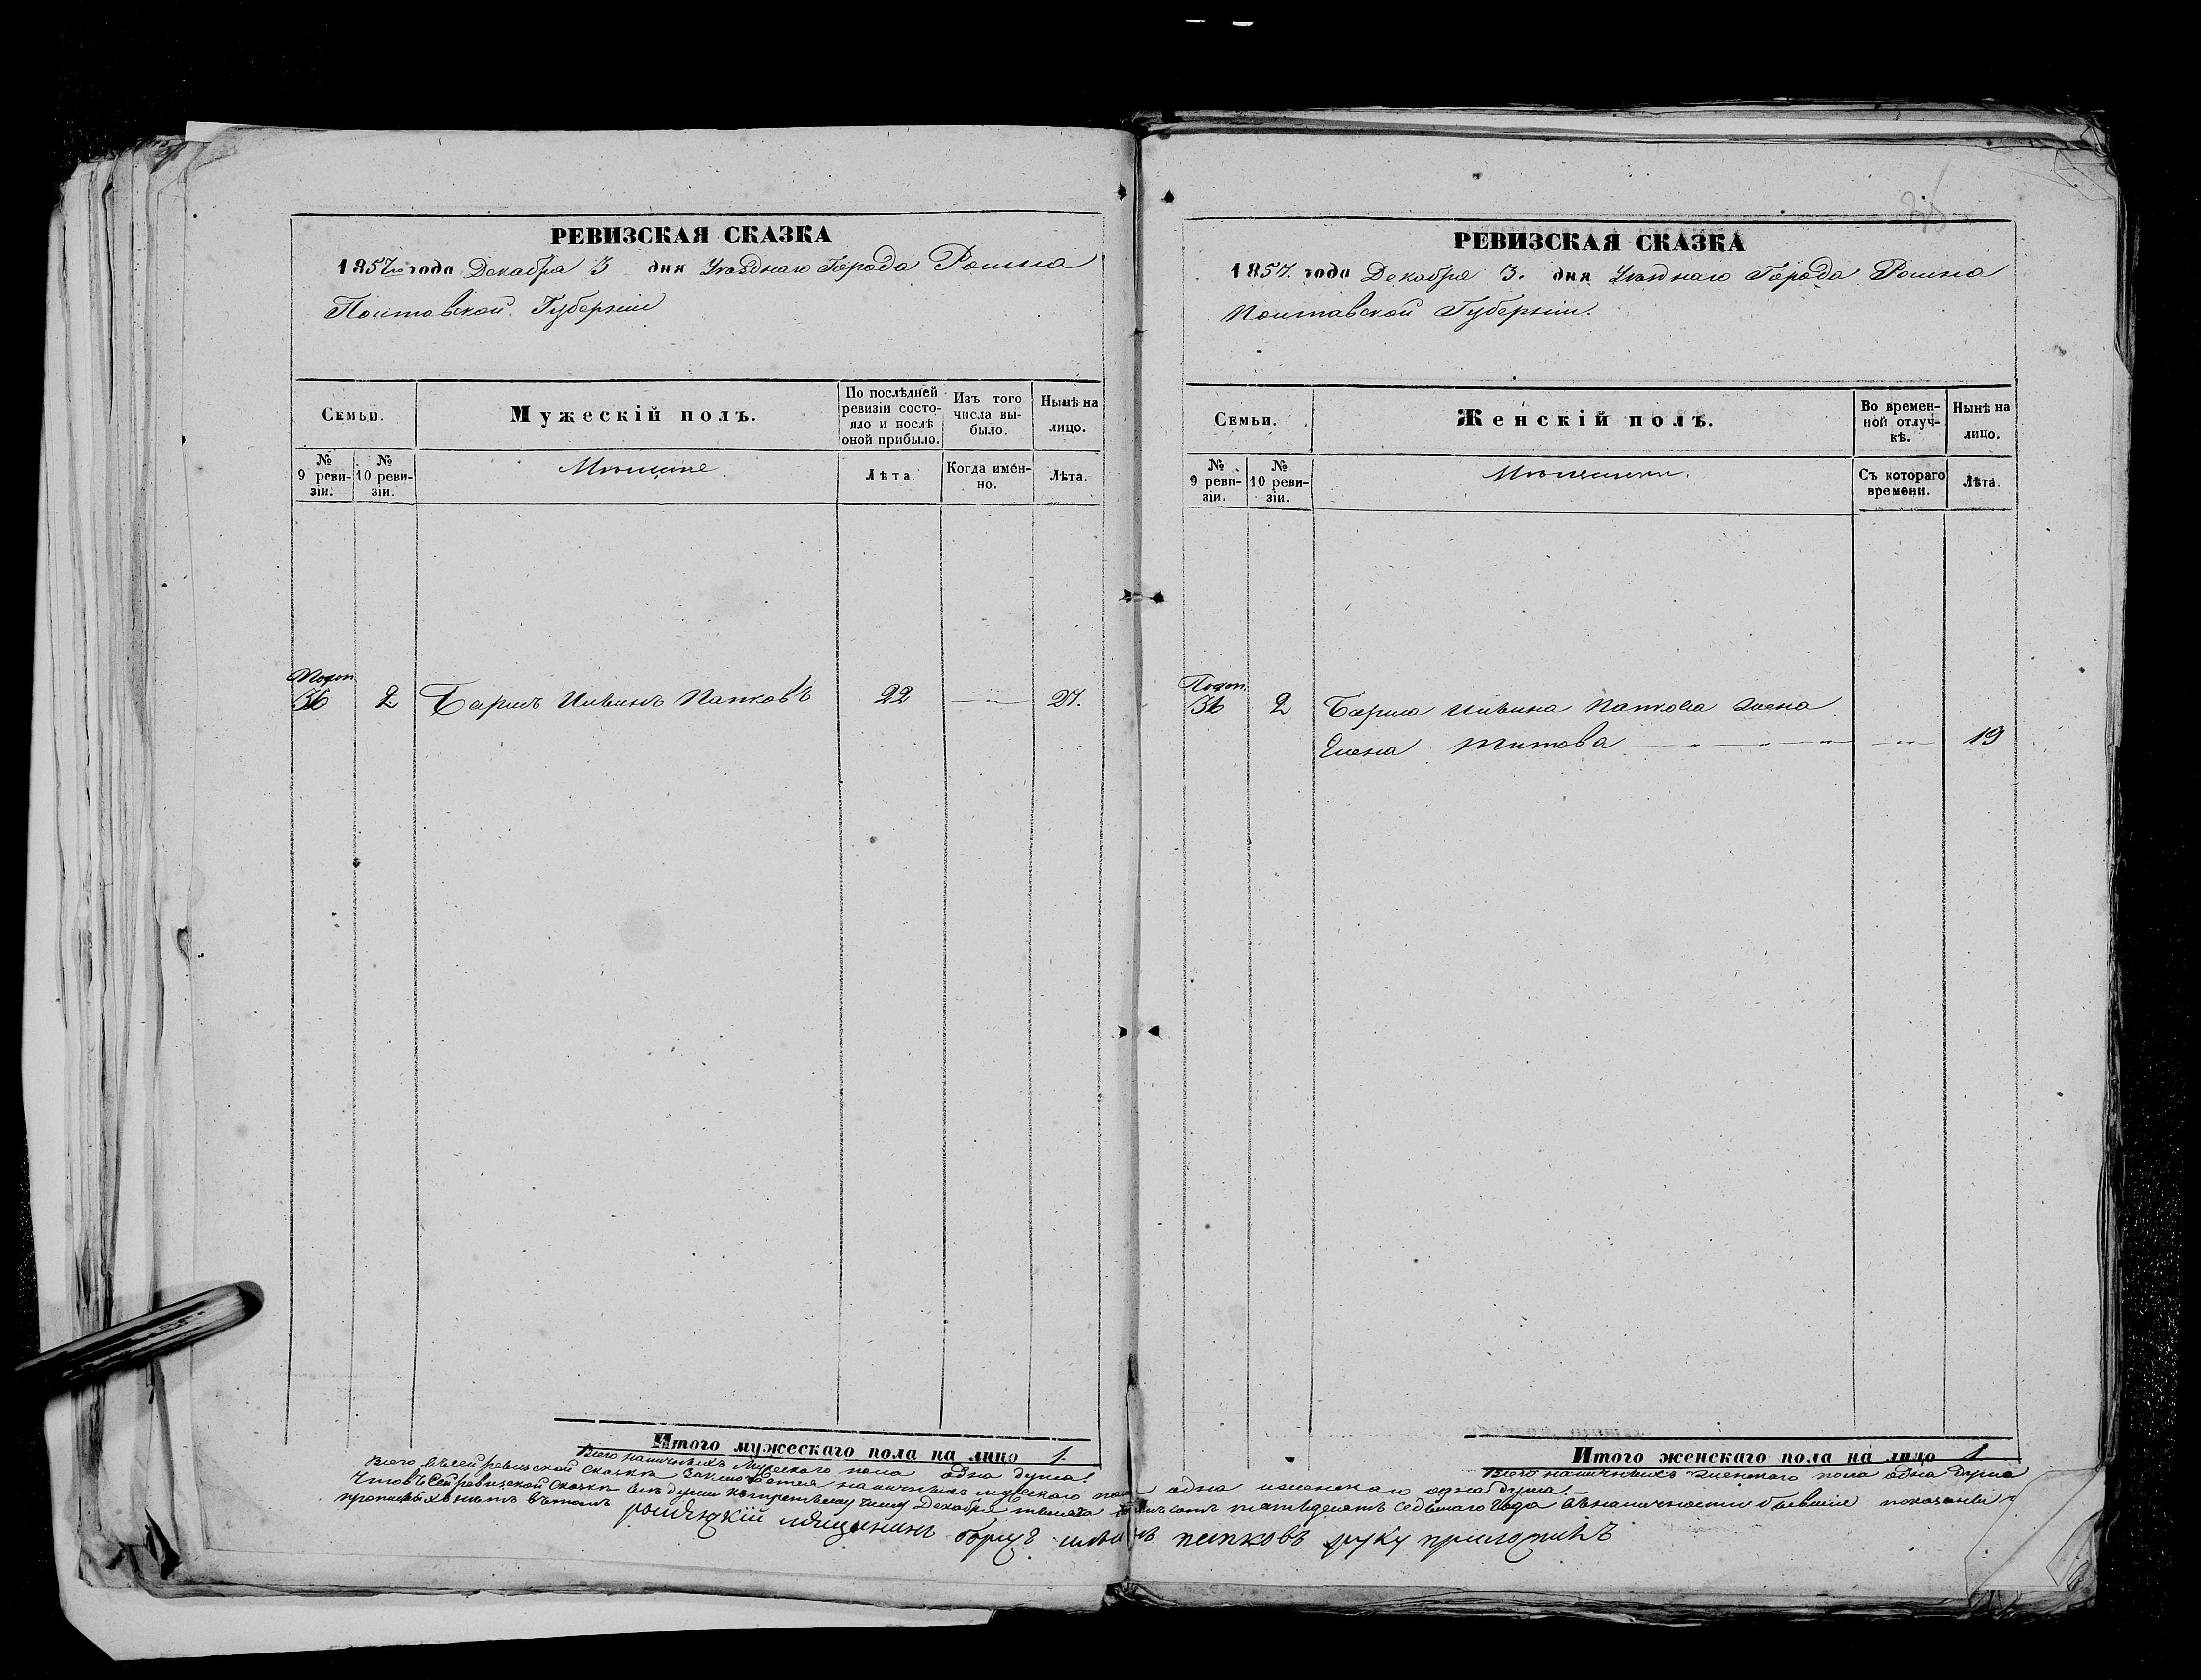 РЕВИЗСКАЯ СКАЗКА
1857го года Декабря 3 дня Уѣзднаго Города Ромна
Полтавской Губерніи
Семьи.
Мужескій полъ.
По послѣдней ревизіи состояло и послѣ оной прибыло.
Изъ того числа выбыло.
Нынѣ на лицо.
№ 9 ревизіи.
№ 10 ревизіи.
Мѣщане
Лѣта.
Когда именно.
Лѣта.
36 2 Борисъ Ильинъ Папковъ 22 27.
Итого мужескаго пола на лицо 1.
Всего наличныхъ Мужескаго пола одна душа.
РЕВИЗСКАЯ СКАЗКА
1857. года Декабря 3. дня Уѣзднаго Города Ромна
Полтавской Губерніи.
Семьи.
Женскій полъ.
Во временной отлучкѣ.
Нынѣ на лицо.
№ 9 ревизіи.
№ 10 ревизіи.
Мѣщанки.
Съ котораго времени.
Лѣта.
36 2 Бориса Ильина Папкова жена
Елена Титова 19
Итого женскаго пола на лицо 1
Всего наличныхъ Женскаго пола одна душа
Всего въ сей ревизской сказкѣ заключается наличныхъ мужескаго пола одна женскаго одна душа.
Что въ сей ревизской сказкѣ всѣ души къ третьему числу Декабря тысяча восемьсотъ пятьдесятъ седьмаго года въ наличности бывшіе показаны и
прописныхъ нѣтъ въ томъ
роменскій мещанинъ борисъ ильинъ папковъ руку приложилъ